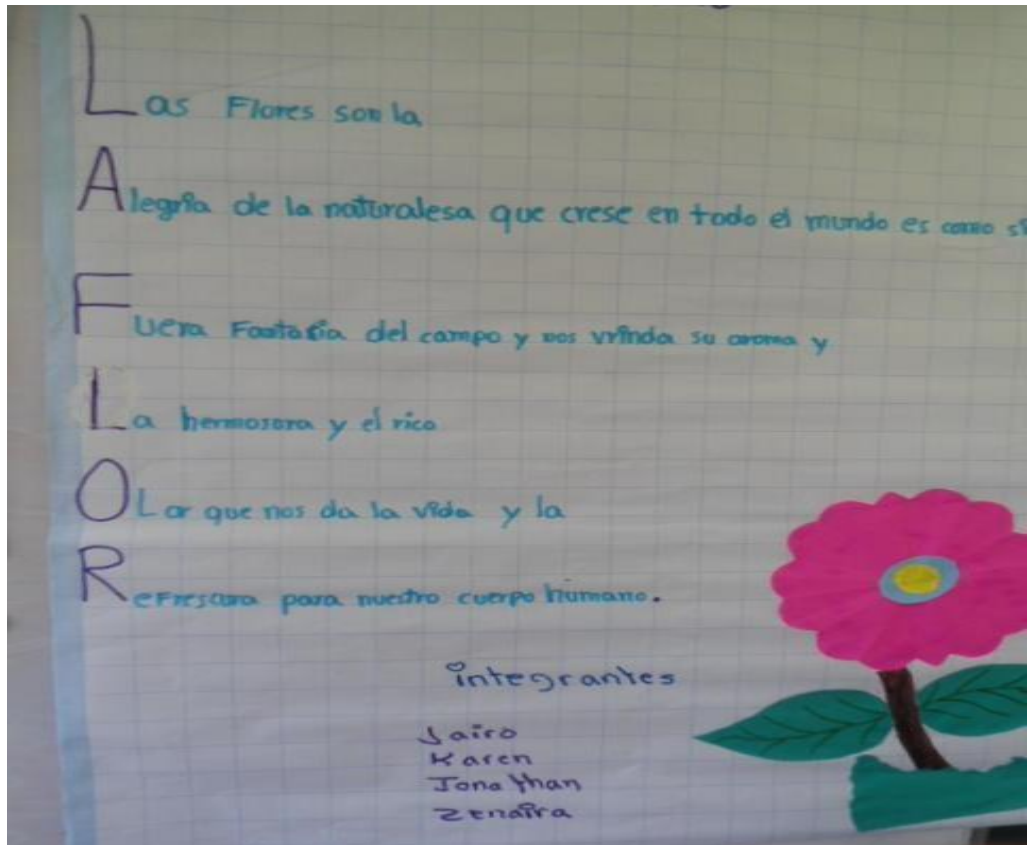 Las Flores son la
Alegria de la naturalesa que crese en todo el mundo es como si
Fuera Fantasia del campo y nos vrinda su aroma y
La hermosora y el rico
OLor que nos da la vida y la
Refrescura para nuestro cuerpo humano.
integrantes
Jairo
Karen
Jonathan
Zenaira